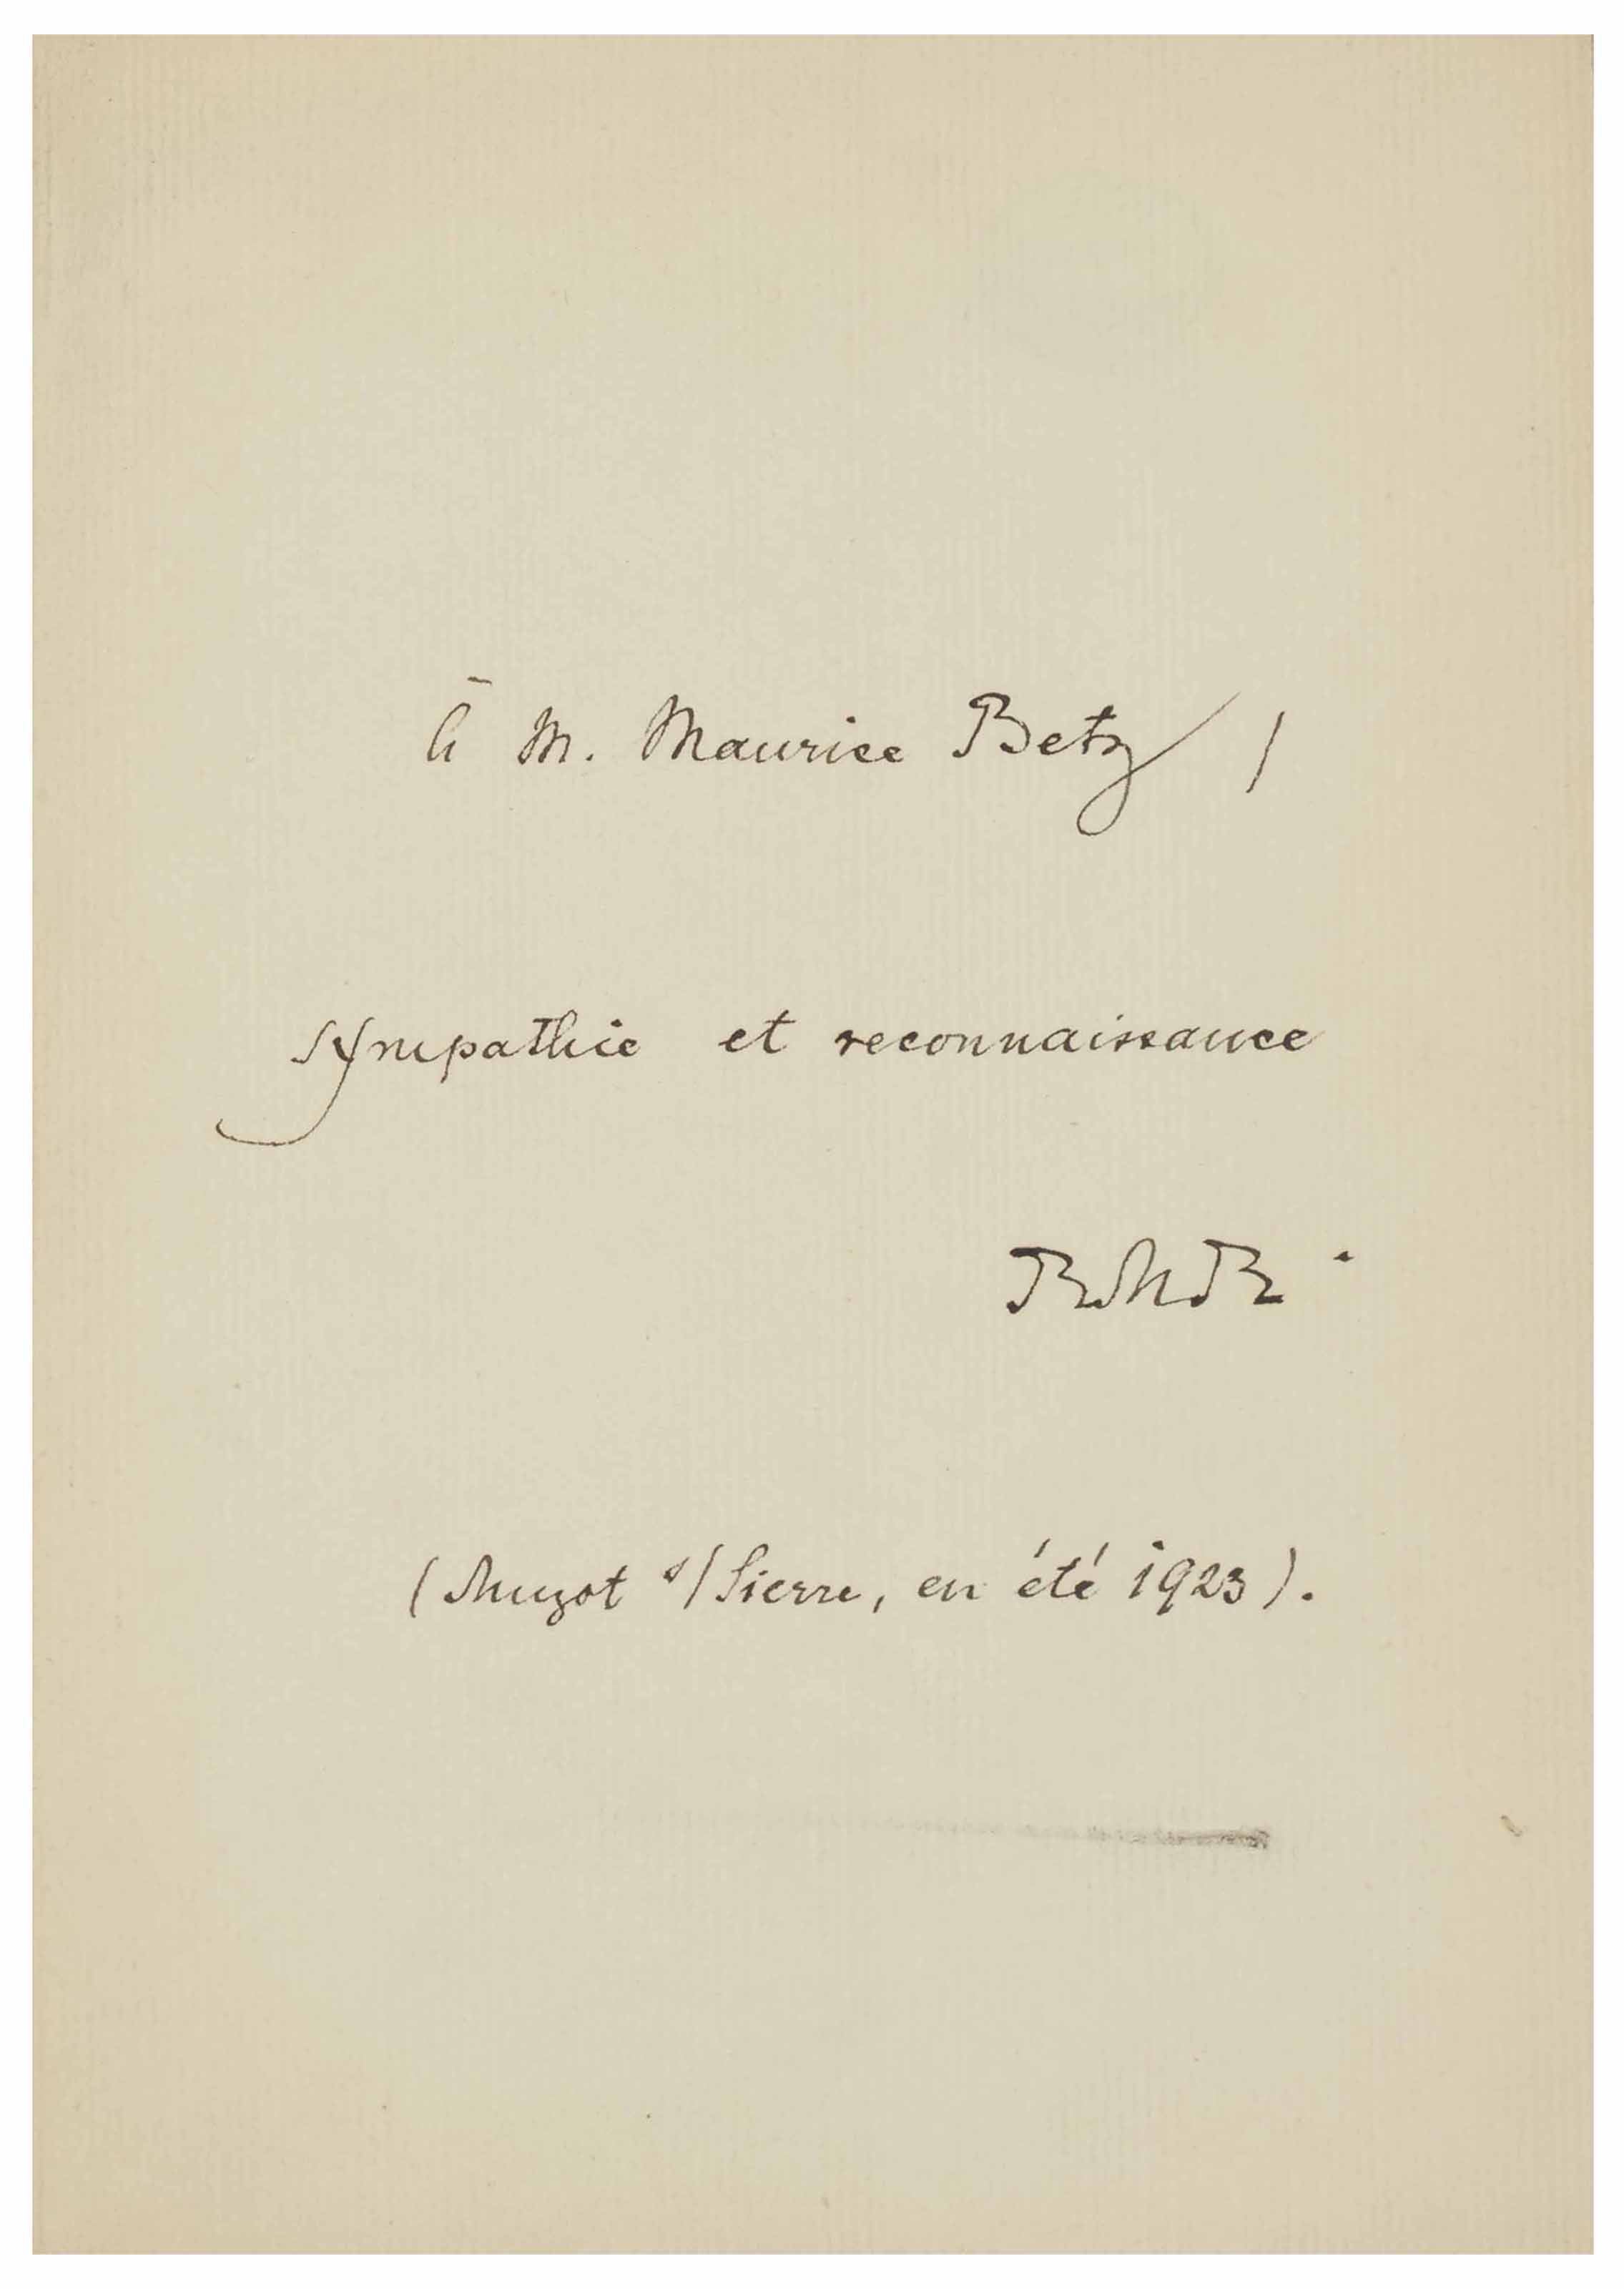 à M. Maurice Betz /
sympathie et reconnaissance
RMR.
(Muzot s/Sierre, en été 1923).